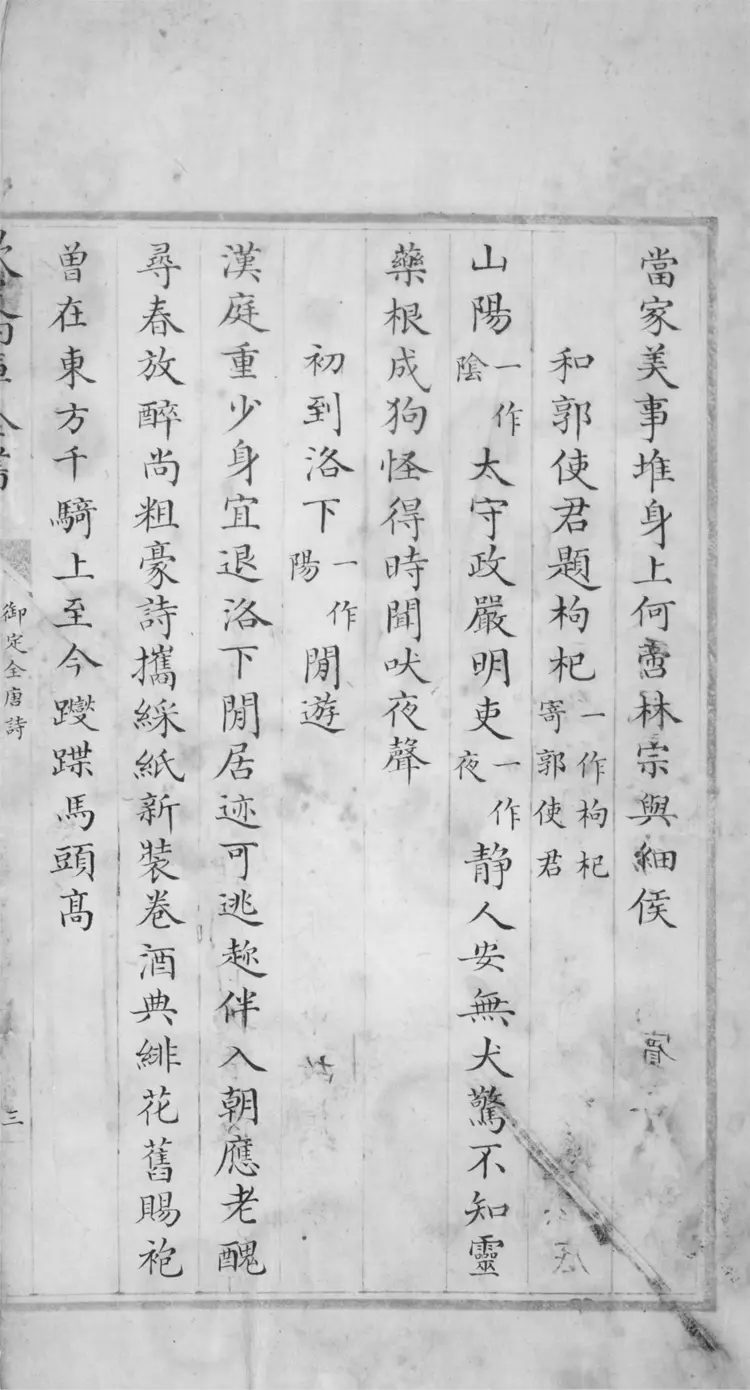 當家美事堆身上何啻林宗與細侯
和郭使君題枸杞一作枸杞寄郭使君
山陽一作陰太守政嚴明吏一作夜靜人安無犬驚不知靈
藥根成狗怪得時聞吠夜聲
初到洛下一作陽閒遊
漢庭重少身宜退洛下閒居迹可逃趂伴入朝應老醜
尋春放醉尚粗豪詩攜綵紙新裝卷酒典緋花舊賜袍
曾在東方千騎上至今躞蹀馬頭高
御定全唐詩
三